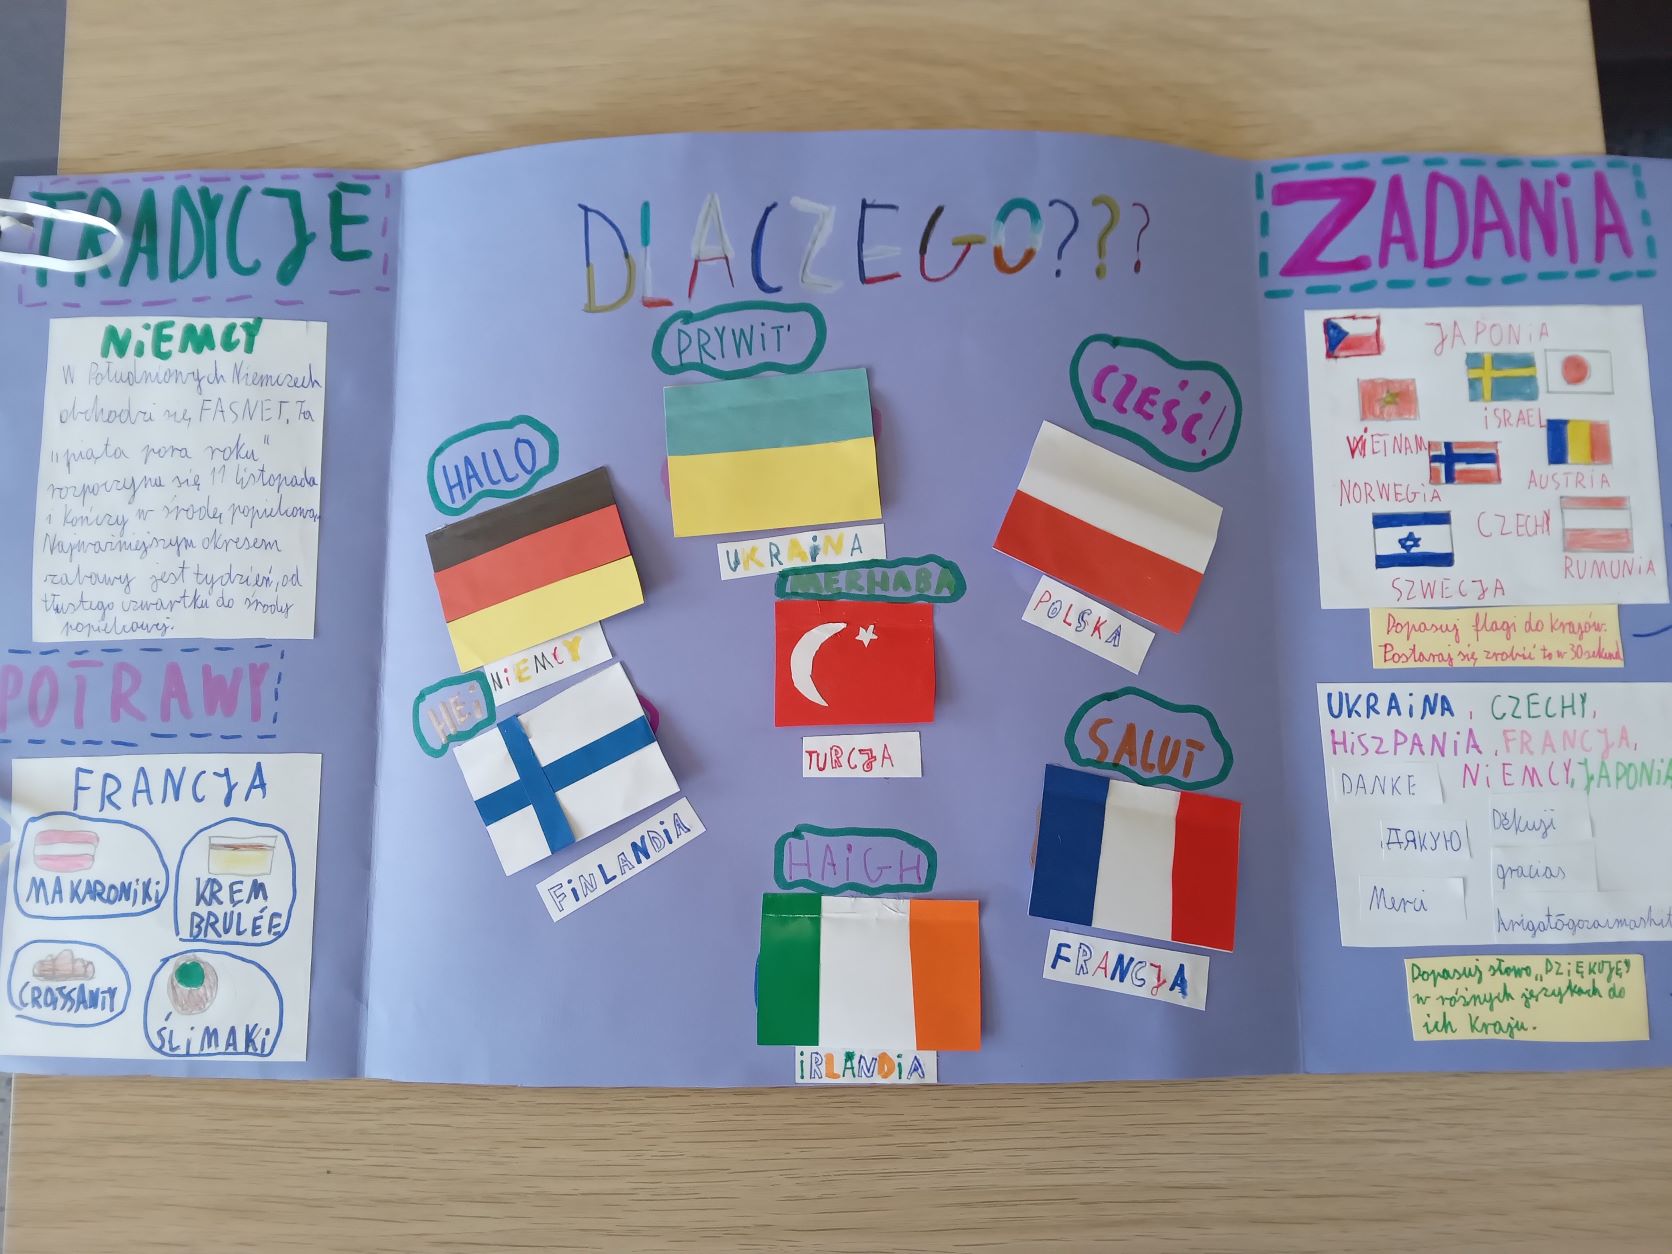 TRADYCJE
NiEMCY
W Południowych Niemczech
obchodzi się FASNET. Ta
"piąta pora roku"
rozpoczyna się 11 listopada
i kończy w środę popielcową.
Najważniejszym okresem
zabawy jest tydzień, od
tłustego czwartku do środy
popielcowej.
POTRAWY
FRANCJA
MAKARONiKi
KREM
BRULÉE
CROISSANTY
ŚLiMAKi
DLACZEGO???
PRYWiT'
UKRAiNA
HALLO
NiEMCY
CZEŚĆ!
POLSKA
MERHABA
TURCJA
HEi
FiNLANDiA
SALUT
FRANCJA
HAiGH
iRLANDiA
ZADANiA
JAPONiA
iSRAEL
WiETNAM
AUSTRiA
NORWEGiA
CZECHY
RUMUNiA
SZWECJA
Dopasuj flagi do krajów.
Postaraj się zrobić to w 30 sekund
UKRAiNA, CZECHY,
HiSZPANiA, FRANCJA,
NiEMCY, JAPONiA
DANKE
Děkuji
ДЯКУЮ
gracias
Merci
Arigatōgozaimashit
Dopasuj słowo „DZiĘKUJĘ"
w różnych językach do
ich kraju.